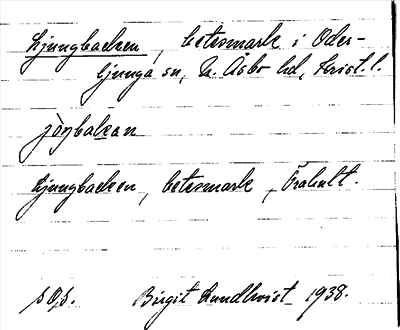 Ljungbacken, betesmark i Oder-
ljunga sn, N. Åsbo hd, Krist. l.
jöŋbakan
Ljungbacken, betesmark, Trahult.
s. 0, s. Birgit Lundkvist 1938.